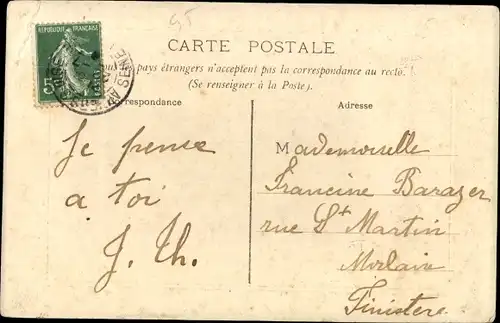 CARTE POSTALE
pays étrangers n'acceptent pas la correspondance au recto.
(Se renseigner à la Poste).
RÉPUBLIQUE FRANÇAISE
5
Correspondance
Adresse
Je pense
a toi
J. Th.
Mademoiselle
Francine Barazer
rue St Martin
Morlaix
Finistere